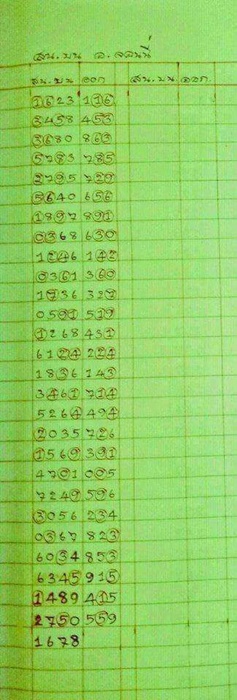 สน.บน อ.จอนนี่
สน.บน ออก สน.บน ออก
1623 116
3458 453
3680 863
5783 785
2795 729
5640 656
1897 891
0368 630
1246 142
0361 360
0591 519
1268 431
6124 224
1836 143
3461 714
5264 494
2035 726
1569 391
4701 005
7249 596
3056 234
0367 823
6034 853
6345 915
1489 415
2750 559
1678